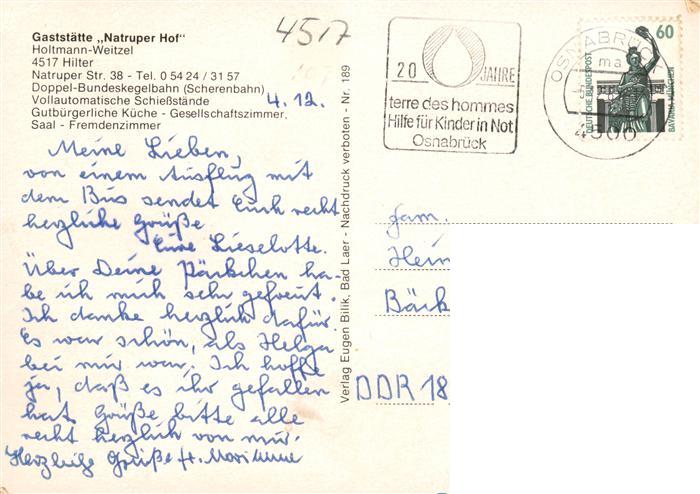 Gaststätte „Natruper Hof"
Holtmann-Weitzel
4517 Hilter
Natruper Str. 38 - Tel. 0 54 24 / 31 57
Doppel-Bundeskegelbahn (Scherenbahn)
Vollautomatische Schießstände
Gutbürgerliche Küche - Gesellschaftszimmer,
Saal - Fremdenzimmer
4517
4.12.
Meine Lieben,
von einem Ausflug mit
dem Bus sendet Euch recht
herzliche Grüße
Eure Lieselotte.
Über Deine Päckchen ha-
be ich mich sehr gefreut.
Ich danke herzlich dafür.
Es war schön, als Helga
bei mir war. Ich hoffe
ja, daß es ihr gefallen
hat Grüße bitte alle
recht herzlich von mir.
Herzliche Grüße
Verlag Eugen Bilik, Bad Laer - Nachdruck verboten - Nr. 189
20 JAHRE
terre des hommes
Hilfe für Kinder in Not
Osnabrück
OSNABRÜCK
ma
4500
60
DEUTSCHE BUNDESPOST
BAVARIA MÜNCHEN
Fam.
Hein
Bäck
DDR 18